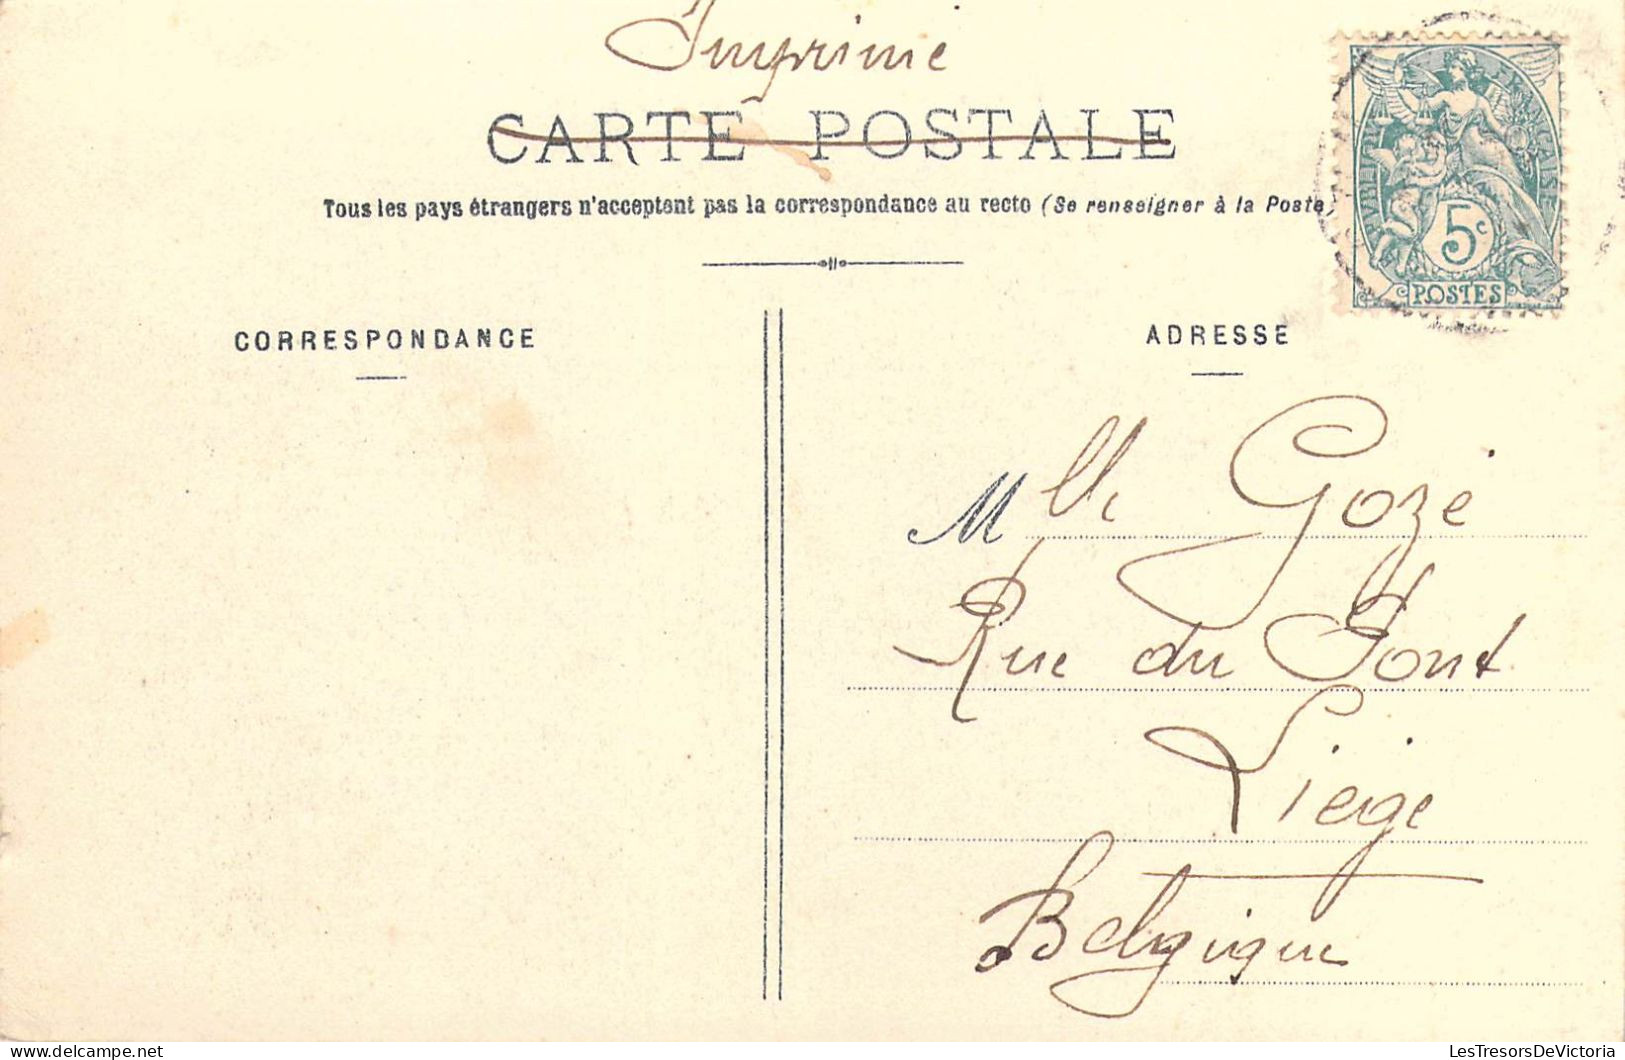 Imprimé
CARTE POSTALE
Tous les pays étrangers n'acceptent pas la correspondance au recto (Se renseigner à la Poste)
REPUBLIQUE FRANÇAISE
5c
POSTES
CORRESPONDANCE
ADRESSE
Mlle Gozé
Rue du Pont
Liège
Belgique
LesTresorsDeVictoria
delcampe.net